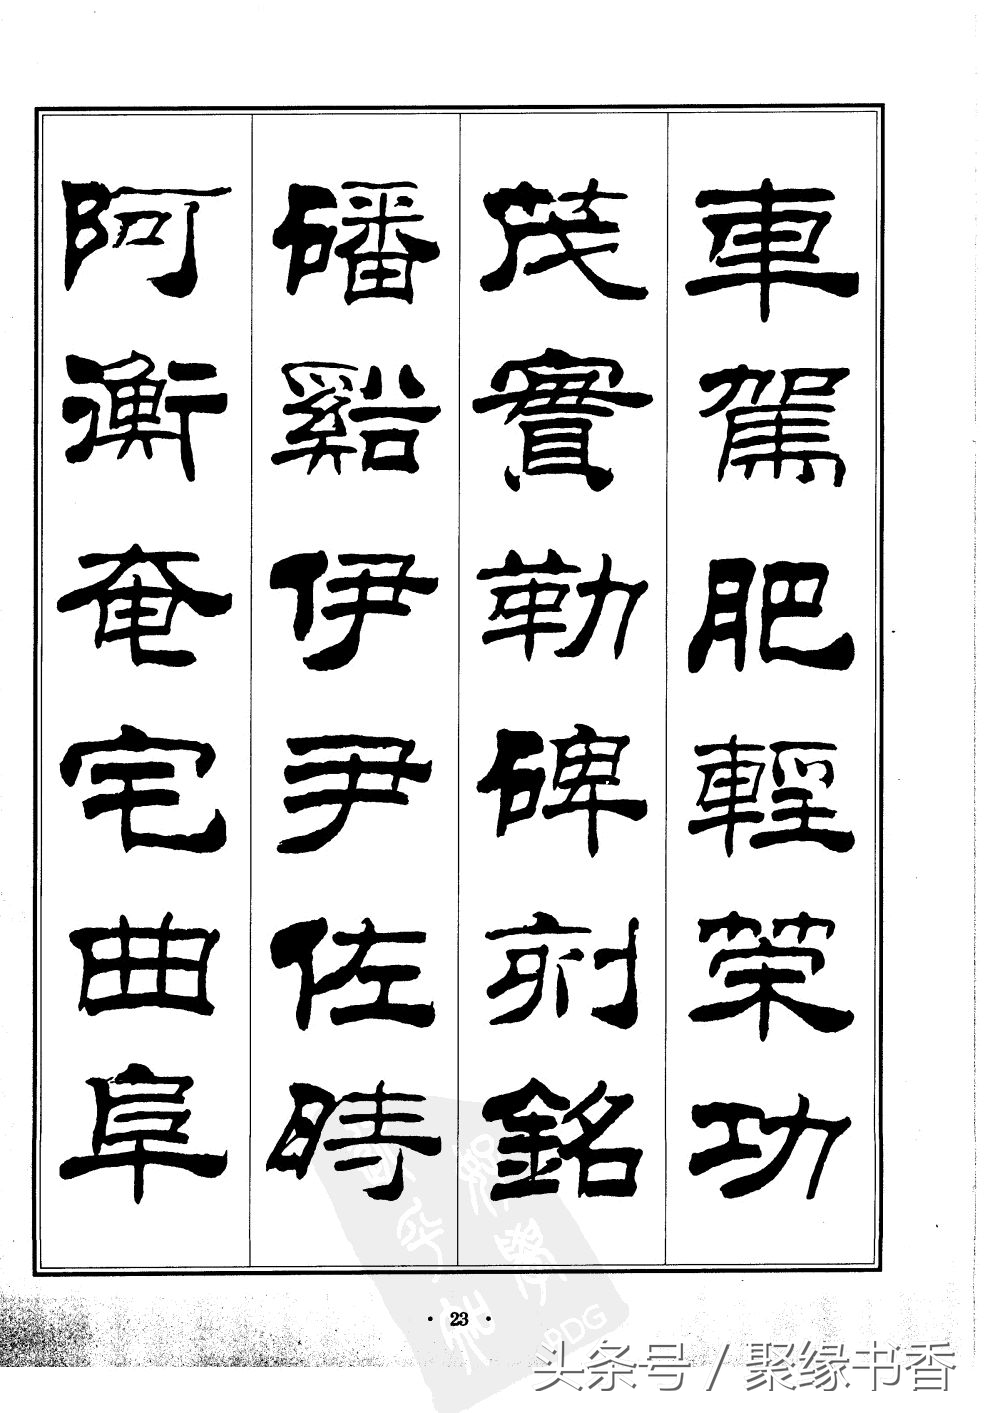 車駕肥輕榮功
茂實勒碑刻銘
磻谿伊尹佐時
阿衡奄宅曲阜
· 23 ·
头条号 / 聚缘书香